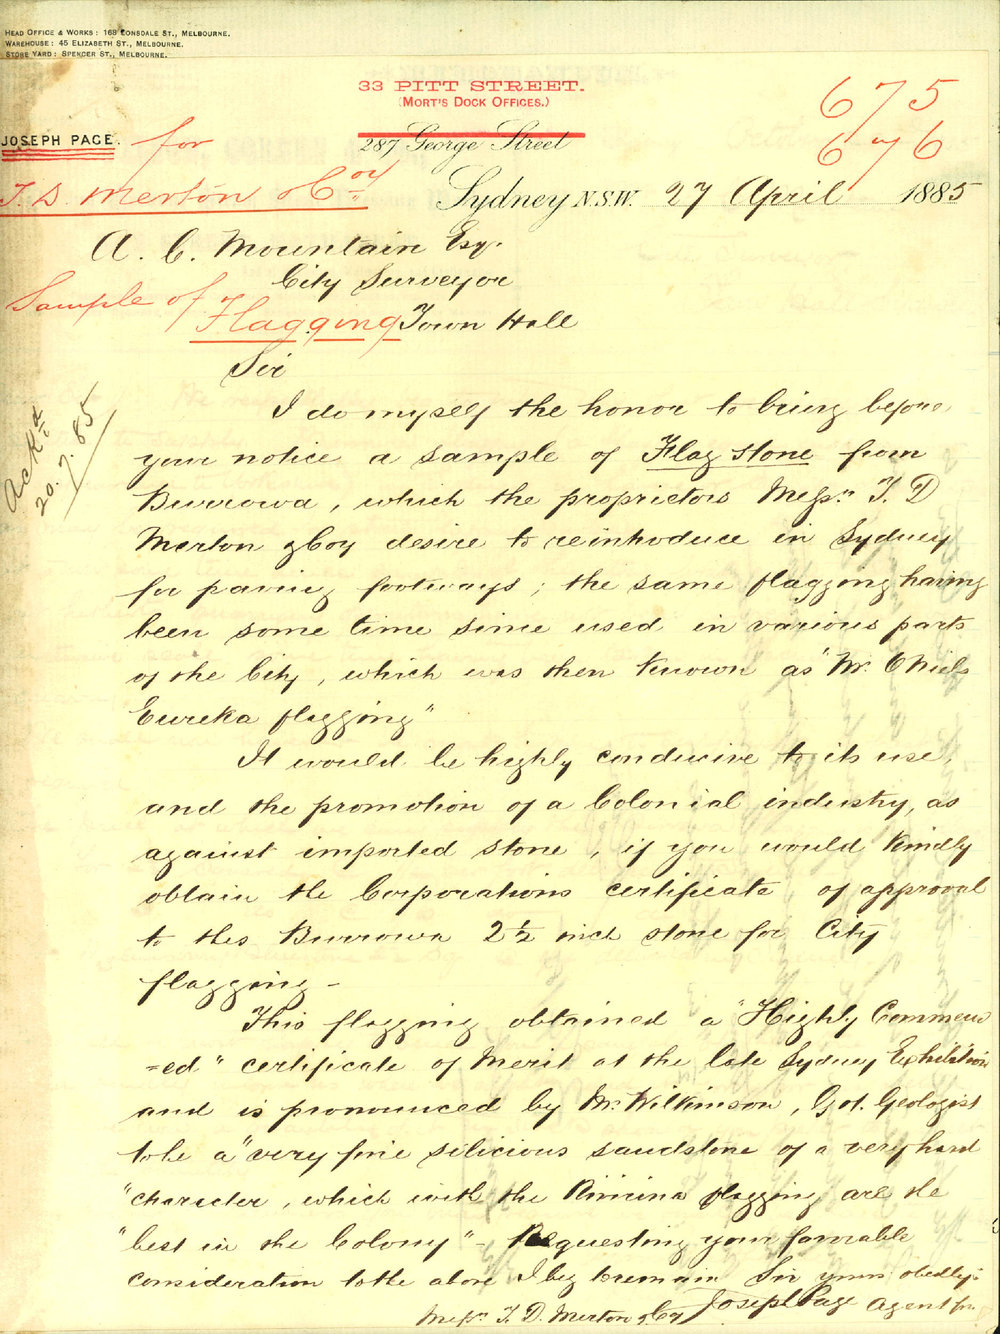 HEAD OFFICE & WORKS: 168 LONSDALE ST., MELBOURNE.
WAREHOUSE: 45 ELIZABETH ST., MELBOURNE.
STORE YARD: SPENCER ST., MELBOURNE.
33 PITT STREET.
(MORT'S DOCK OFFICES.)
675
6 my 6
JOSEPH PAGE. for
287 George Street
T. D. Merton & Coy
Sydney N.S.W. 27 April 1885
A. C. Mountain Esq.
City Surveyor
Sample of
Flagging Town Hall
Sir
Ackd
20.7.85
I do myself the honor to bring before
your notice a sample of Flag Stone from
Burrowa, which the proprietors Messrs T. D
Merton & Coy desire to reintroduce in Sydney
for paving footways; the same flagging having
been some time since used in various parts
of the City, which was then known as "Mr. O'Niels
Eureka flagging"
It would be highly conducive to its use,
and the promotion of a Colonial industry, as
against imported stone, if you would kindly
obtain the Corporations certificate of approval
to this Burrowa 2½ inch stone for City
flagging -
This flagging obtained a "Highly Commend
=ed" certificate of Merit at the late Sydney Exhibition
and is pronounced by Mr. Wilkinson, Got. Geologist
to be a "very fine silicious sandstone of a very hard
"character, which with the Kiama flagging are the
"best in the Colony" - Requesting your favorable
consideration to the above I beg to remain Sir yours obedly.
Joseph Page Agent for
Messrs T. D. Merton & Coy